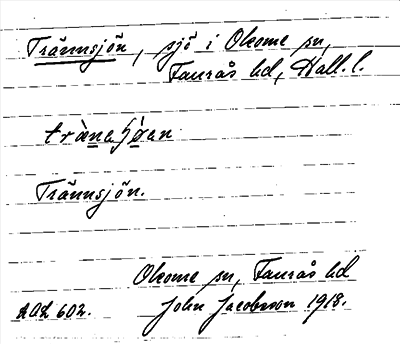 Trännsjön, sjö i Okome sn,
Faurås hd, Hall. l.
Trännsjön.
Okome sn, Faurås hd
AOL 602. John Jacobsson 1918.